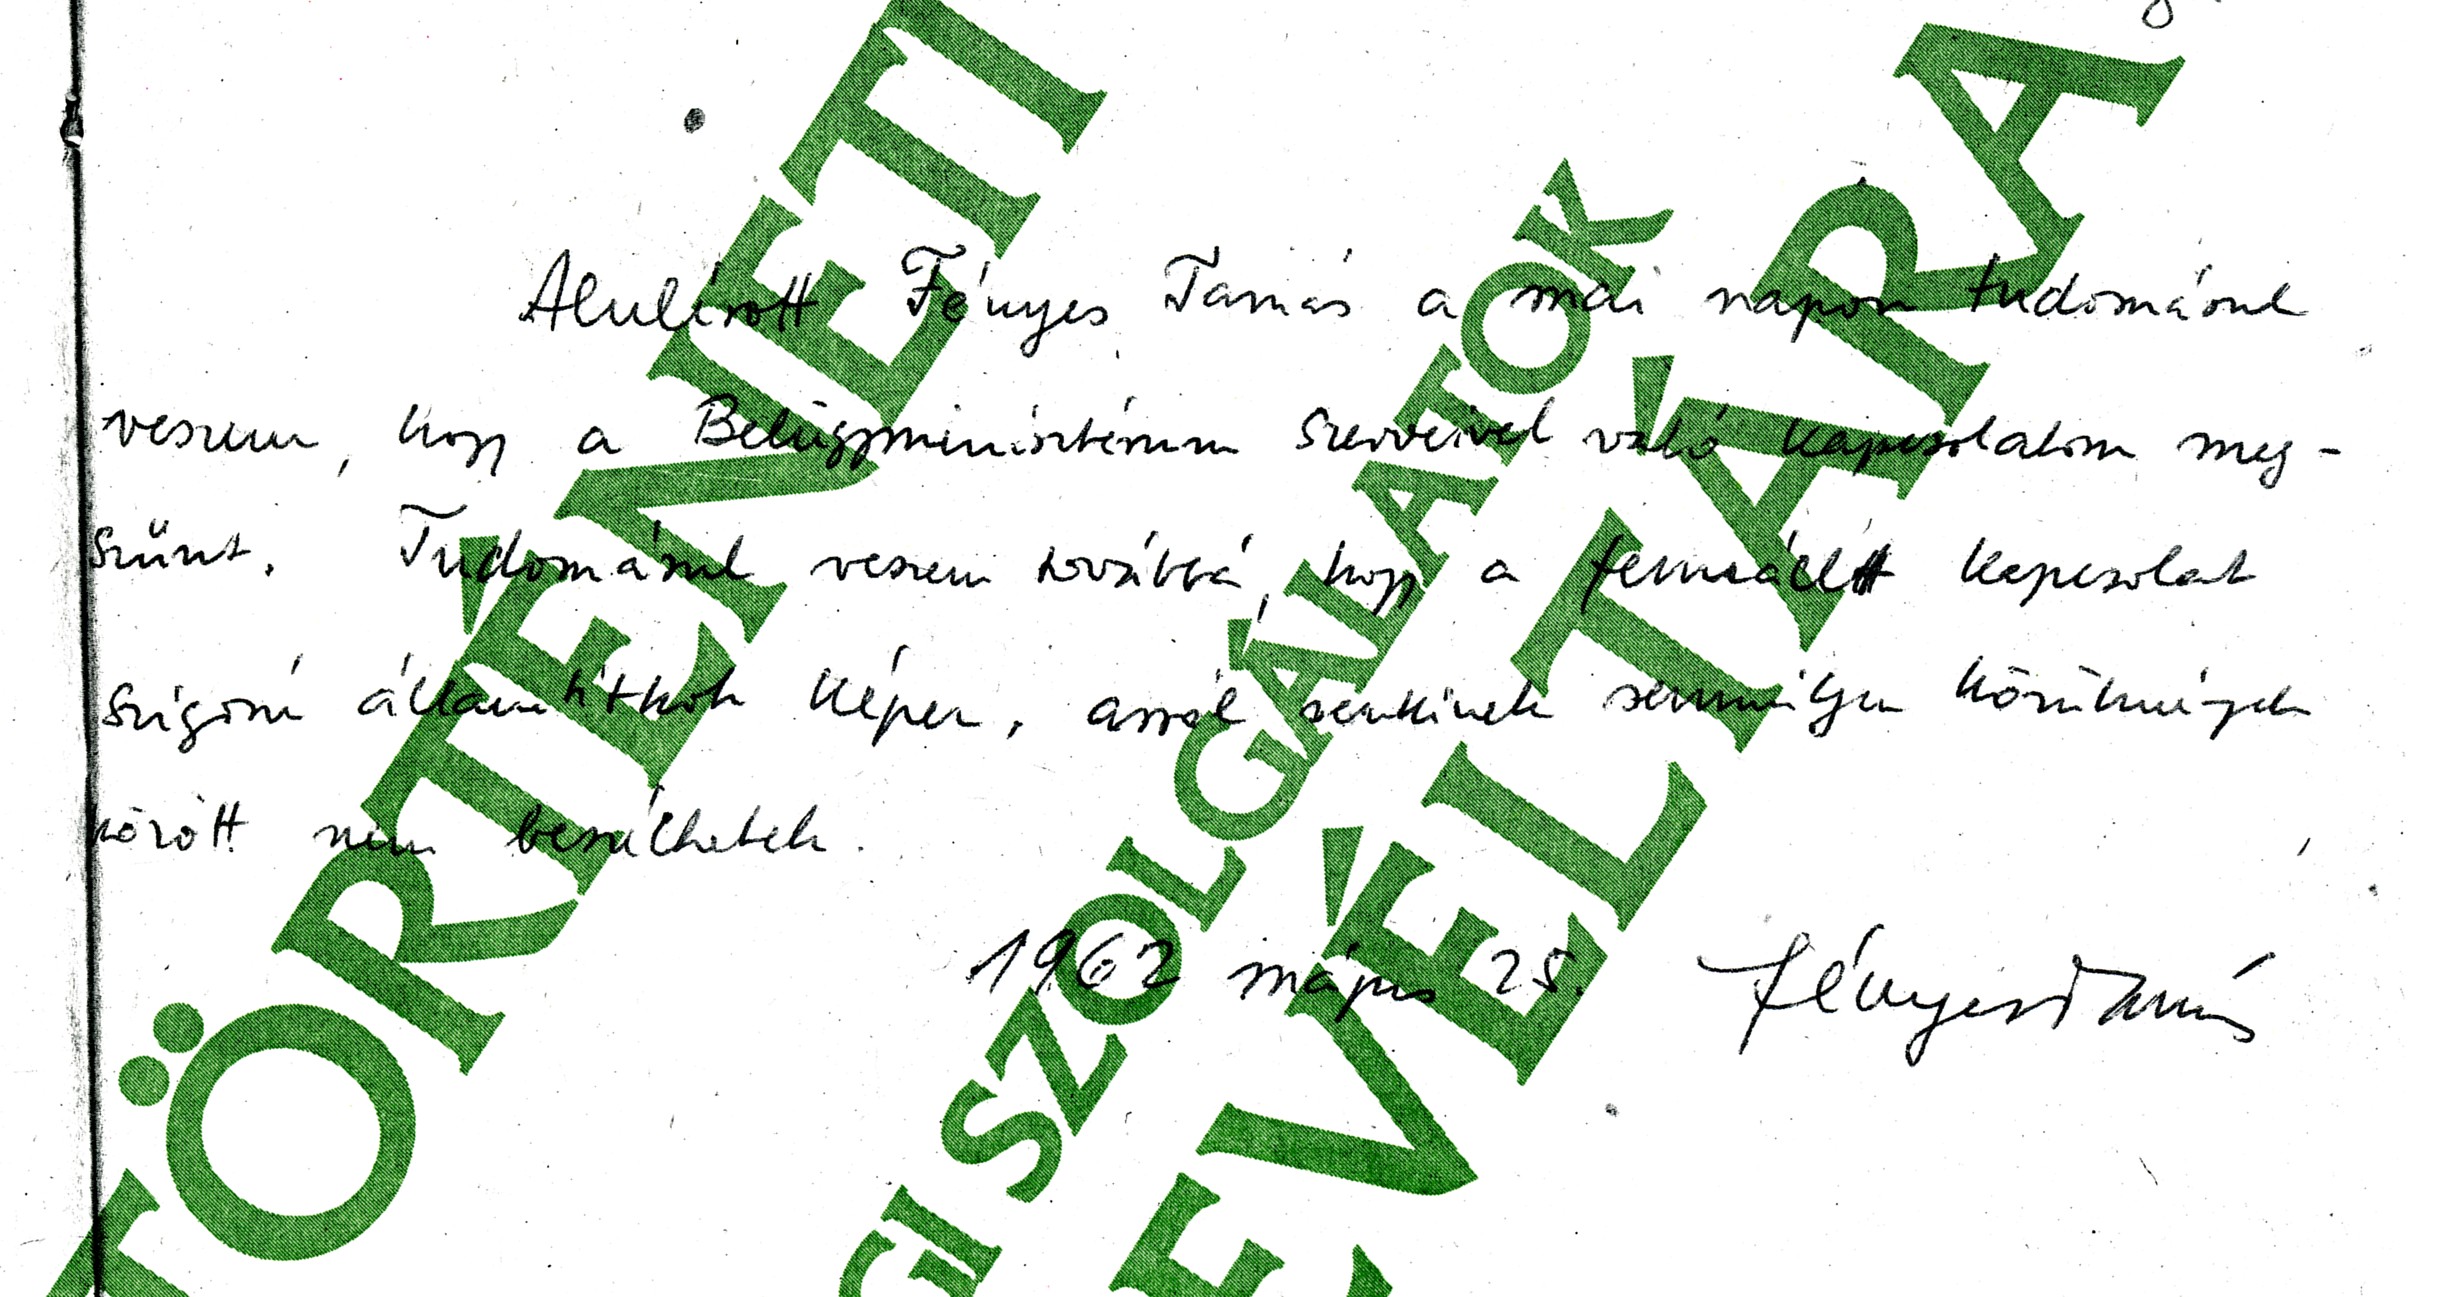 Alulírott Fényes Tamás a mai napon tudomásul
veszem, hogy a Belügyminisztérium szerveivel való kapcsolatom meg-
szünt. Tudomásul veszem továbbá, hogy a fennállt kapcsolat
szigorú államtitkot képez, arról senkinek semmilyen körülmények
között nem beszélhetek.
1962 május 25. Fényes Tamás
TÖRTÉNETI
GI SZOLGÁLATOK
LEVÉLTÁRA